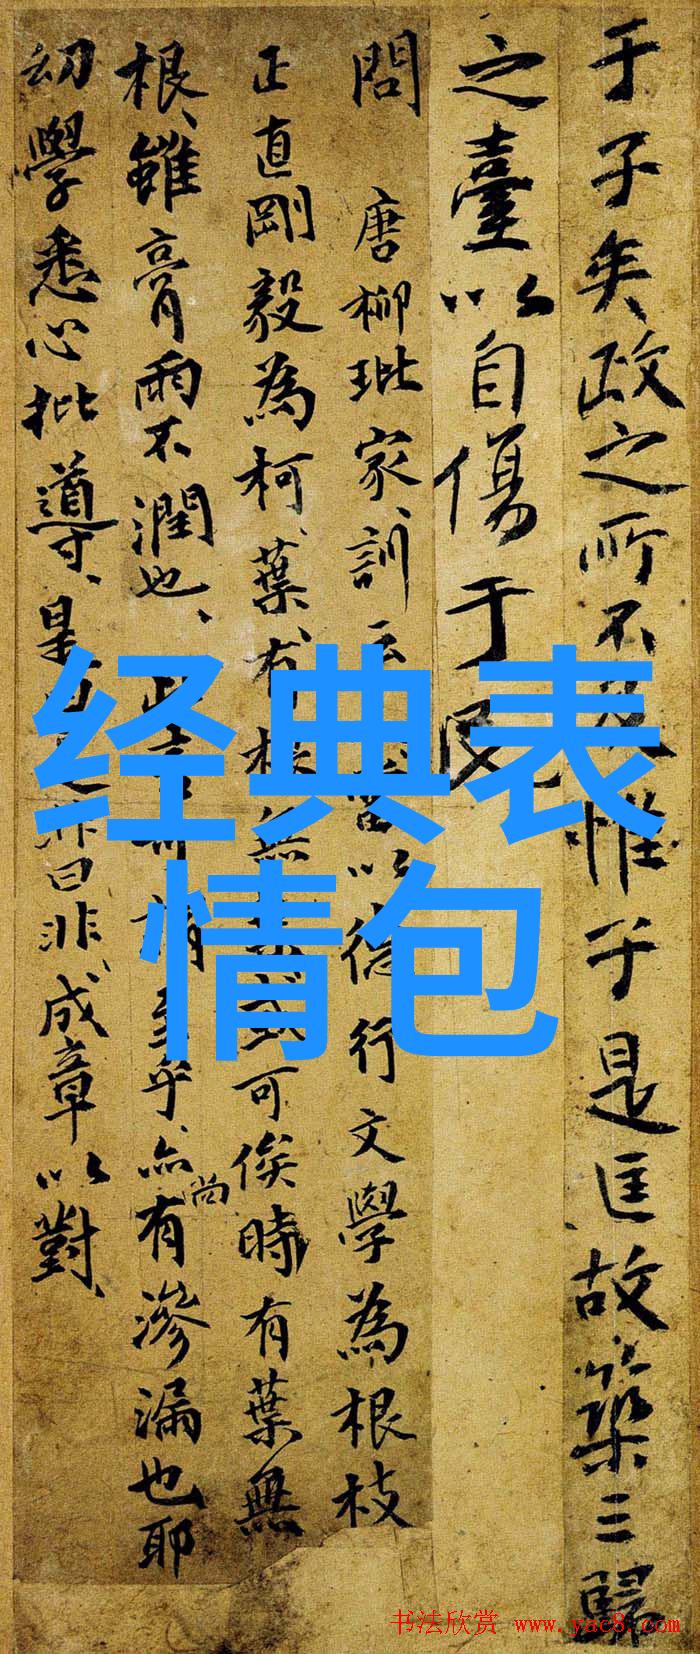 于子矣政之所不及惟于是匡故築三歸
之臺以自傷于民
問 唐柳玭家訓云 以德行文學為根枝
正直剛毅為柯葉有根無葉或可俟時有葉無
根雖膏雨不潤也 至乎尚亦有滲漏也耶
幼學悉心批導是曰是非曰非成章以對
经典表
情包
书法欣赏 www.yac8.com